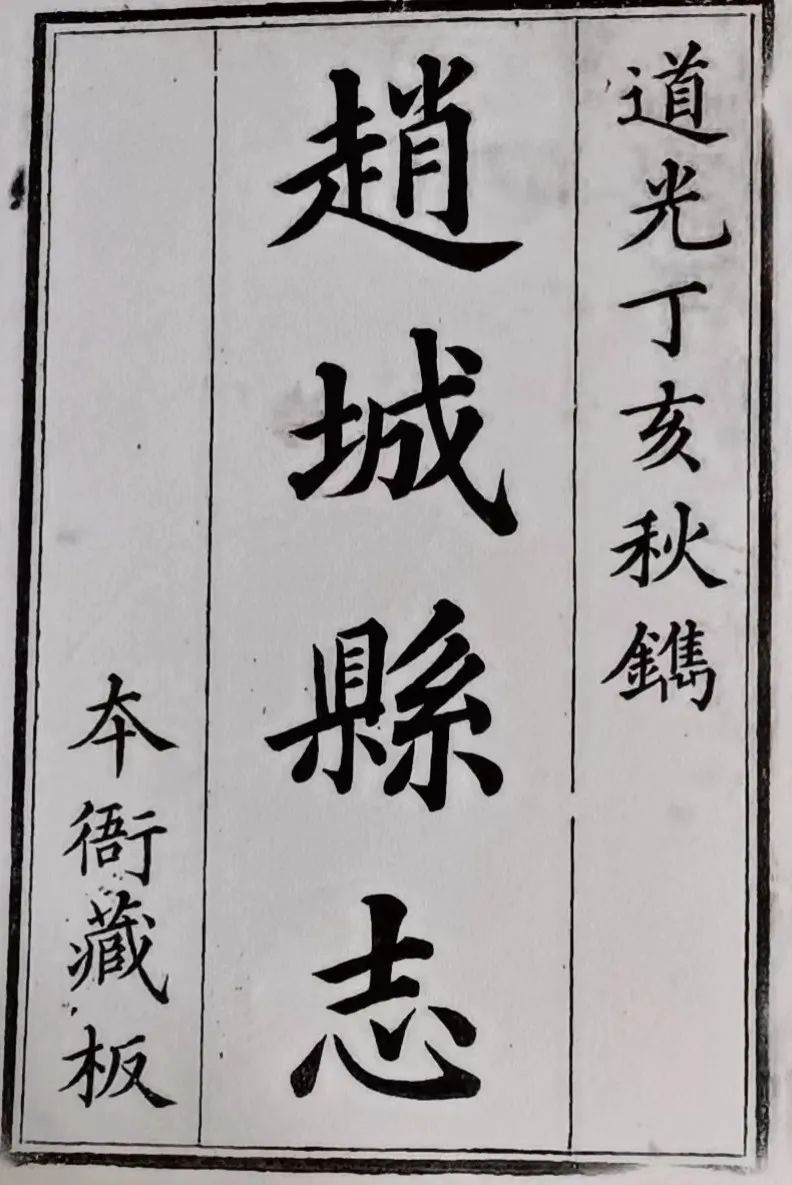 道光丁亥秋鐫
趙城縣志
本衙藏板